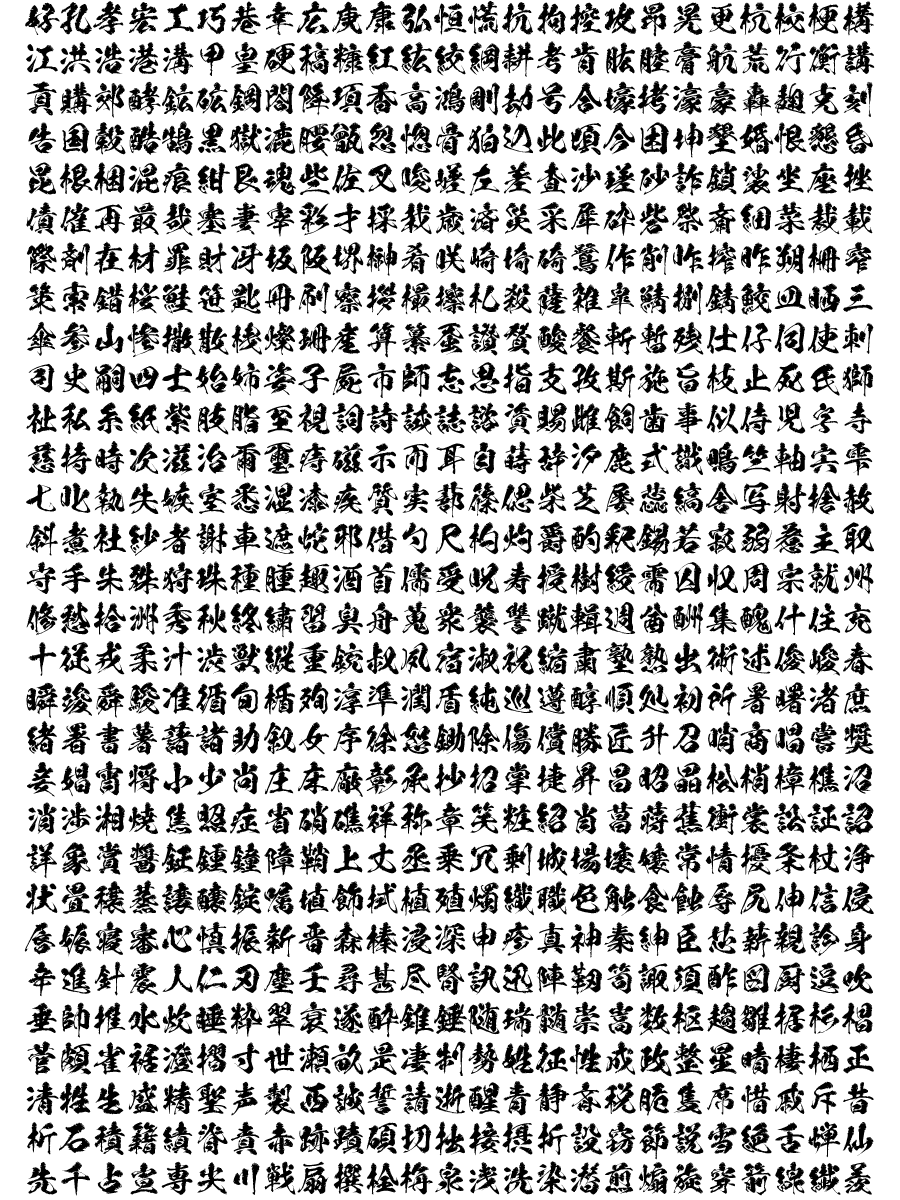 好孔孝宏工巧巷幸広庚康弘恒慌抗拘控攻昂晃更杭校梗構
江洪浩港溝甲皇硬稿糠紅紘絞綱耕考肯肱腔膏航荒行衡講
貢購郊酵鉱砿鋼閤降項香高鴻剛劫号合壕拷濠豪轟麹克刻
告国穀酷鵠黒獄漉腰甑忽惚骨狛込此頃今困坤墾婚恨懇昏
昆根梱混痕紺艮魂些佐叉唆嵯左差査沙瑳砂詐鎖裟坐座挫
債催再最哉塞妻宰彩才採栽歳済災采犀砕砦祭斎細菜裁載
際剤在材罪財冴坂阪堺榊肴咲崎埼碕鷺作削咋搾昨朔柵窄
策索錯桜鮭笹匙冊刷察拶撮擦札殺薩雑皐鯖捌錆鮫皿晒三
傘参山惨撒散桟燦珊産算纂蚕讃賛酸餐斬暫残仕仔伺使刺
司史嗣四士始姉姿子屍市師志思指支孜斯施旨枝止死氏獅
祉私糸紙紫肢脂至視詞詩試誌諮資賜雌飼歯事似侍児字寺
慈持時次滋治爾璽痔磁示而耳自蒔辞汐鹿式識鴫竺軸宍雫
七叱執失嫉室悉湿漆疾質実蔀篠偲柴芝屡蕊縞舎写射捨赦
斜煮社紗者謝車遮蛇邪借勺尺杓灼爵酌釈錫若寂弱惹主取
守手朱殊狩珠種腫趣酒首儒受呪寿授樹綬需囚収周宗就州
修愁拾洲秀秋終繍習臭舟蒐衆襲讐蹴輯週酋酬集醜什住充
十従戎柔汁渋獣縦重銃叔夙宿淑祝縮粛塾熟出術述俊峻春
瞬竣舜駿准循旬楯殉淳準潤盾純巡遵醇順処初所暑曙渚庶
緒署書薯藷諸助叙女序徐恕鋤除傷償勝匠升召哨商唱嘗奨
妾娼宵将小少尚庄床廠彰承抄招掌捷昇昌昭晶松梢樟樵沼
消渉湘焼焦照症省硝礁祥称章笑粧紹肖菖蒋蕉衝裳訟証詔
詳象賞醤鉦鍾鐘障鞘上丈丞乗冗剰城場壌嬢常情擾条杖浄
状畳穣蒸譲醸錠嘱埴飾拭植殖燭織職色触食蝕辱尻伸信侵
唇娠寝審心慎振新晋森榛浸深申疹真神秦紳臣芯薪親診身
辛進針震人仁刃塵壬尋甚尽腎訊迅陣靭笥諏須酢図厨逗吹
垂帥推水炊睡粋翠衰遂酔錐錘随瑞髄崇嵩数枢趨雛据杉椙
菅頗雀裾澄摺寸世瀬畝是凄制勢姓征性成政整星晴棲栖正
清牲生盛精聖声製西誠誓請逝醒青静斉税脆隻席惜戚斥昔
析石積籍績脊責赤跡蹟碩切拙接摂折設窃節説雪絶舌蝉仙
先千占宣専尖川戦扇撰栓栴泉浅洗染潜煎煽旋穿箭線繊羨